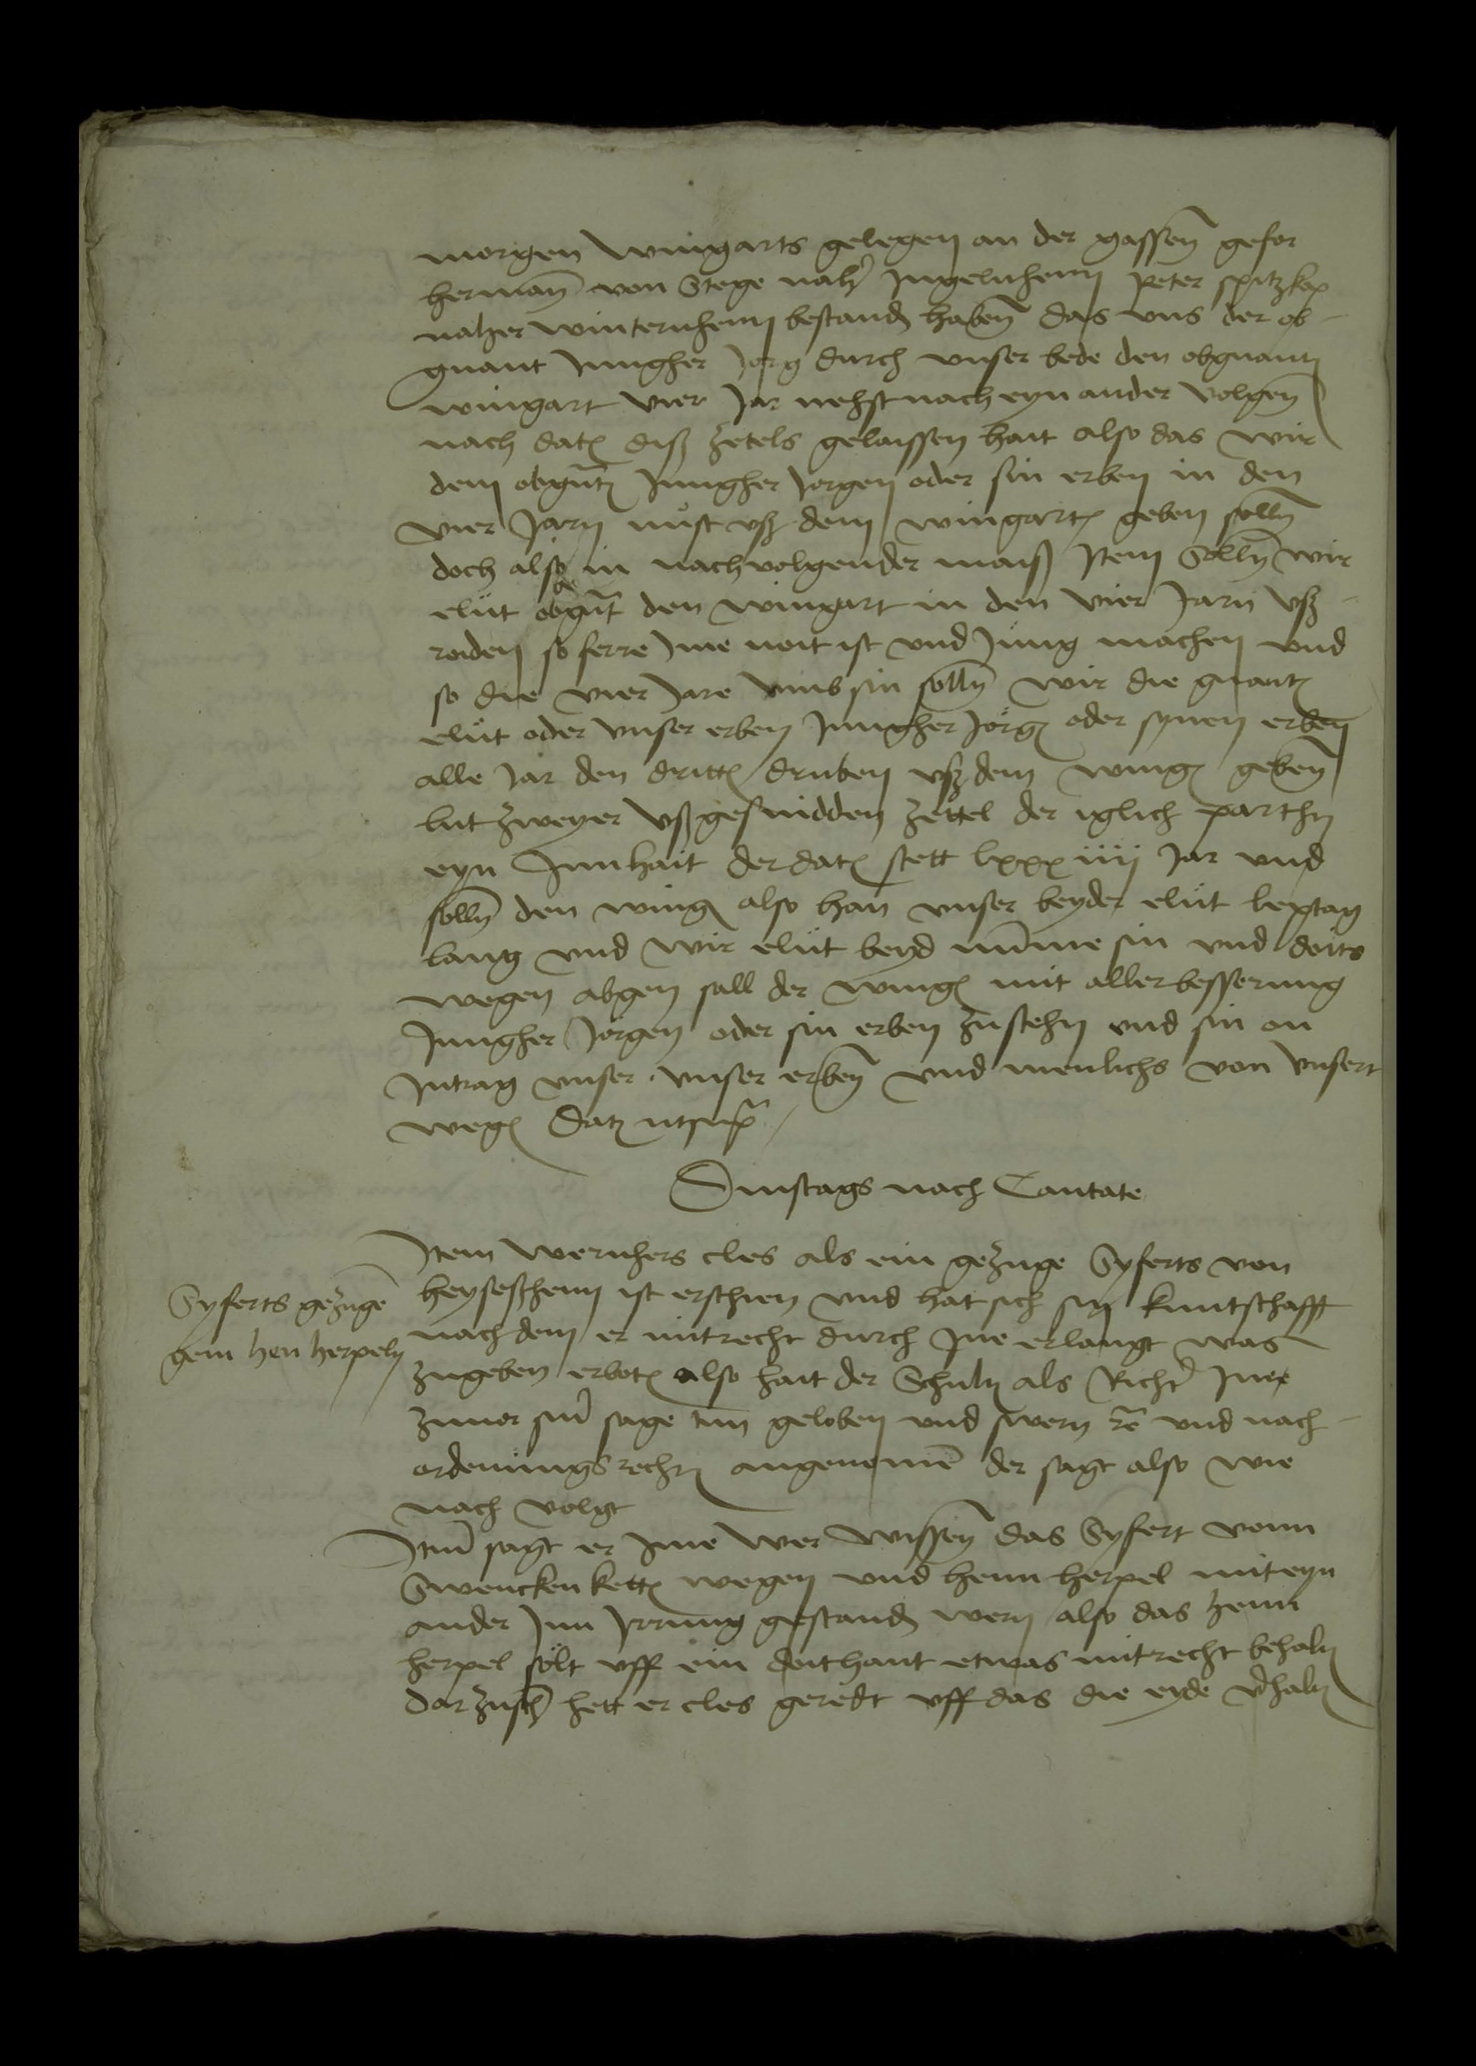 morgen wingarts gelegen an der gassen gefor
herman von Stege naher Ingelnheim Peter spitzkop
naher winternheim bestand haben das vns der ob-
gnant Jungher Jorg durch vnser bede den obgnant
wingart vier Jar nehst nach eyn ander volgen
nach dat diß zetels gelaissen hait also das wir
dem obgnt Jungher Jorgen oder sin erben in den
vier Jarn nust vß dem wingart geben solln
doch also in nachvolgender maiß Item Solln wir
elut obgnt den wingart in den vier Jarn vß-
roiden so ferre Ime noit ist vnd Jung machen vnd
so die vier Jare vmb sin solln wir die gnant
elut oder vnser erben Jungher Jorg oder synen erben
alle Jar den dritt druben vß dem wing geben
lut zweyer vßgesnidden zettel der iglich parthy
eyn Innhait der dat stett lxxxiiij Jar vnd
solln den wing also han vnser beyder elut leptag
lang vnd wir elut beyd nume sin vnd doits
wegen abgen sall der wing mit aller besserung
Jungher Jorgen oder sin erben zustehn vnd sin on
Intrag vnser vnser erben vnd menlichs von vnsert
weg dat ut sup
Dinstags nach Cantate
Item wernhers cles als ein gezuge Syferts von
Syferts gezuge
gein hen herpeln
heyseßheim ist erschien vnd hat sich sin kuntschafft
nach dem er mit recht durch Ine erlangt was
zugeben erbot also hait der Schult als Richt Ine
zuuor sin sage tun geloben vnd swern re vnd nach-
ordenungs recht angenomen der sagt also wie
nach volgt
Item sagt er Ime wer wissen das Syfert vonn
Swencken kett wegen vnd henn herpel mit eyn
ander Inn Irrung gestand wern also das henn
herpel solt vff ein doithant etwas mit recht behalt
dar zusch hett er cles geredt vff das die eyde vhalt